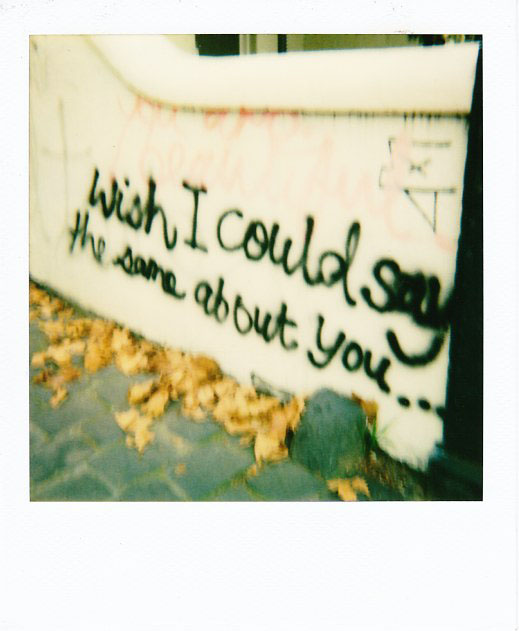 you are
beautiful
Wish I could say
the same about you...